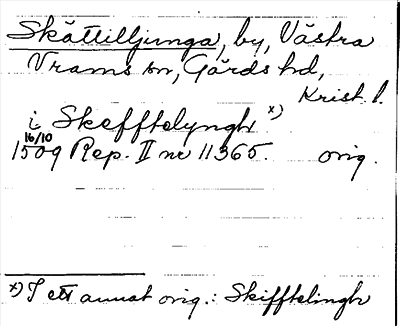 Skättilljunga, by, Västra
Vrams sn, Gärds hd,
Krist. l.
i Skefftelyngh x)
16/10
1509 Rep. II nr 11365. orig.
x) I ett annat orig.: Skifftelingh